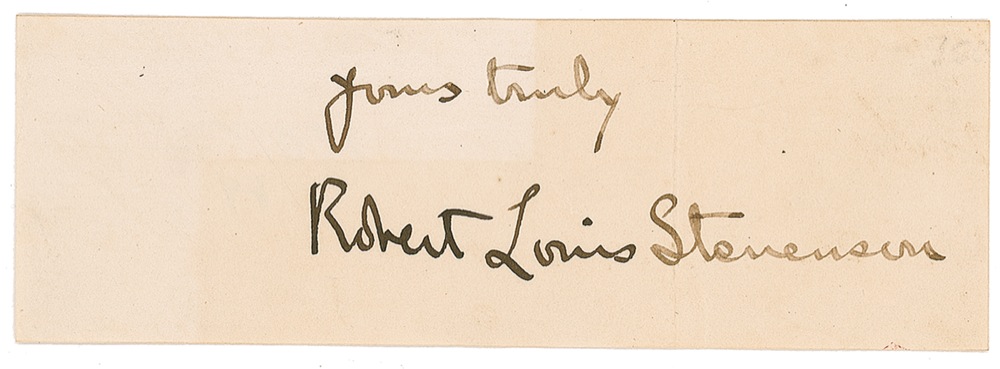 yours truly
Robert Louis Stevenson